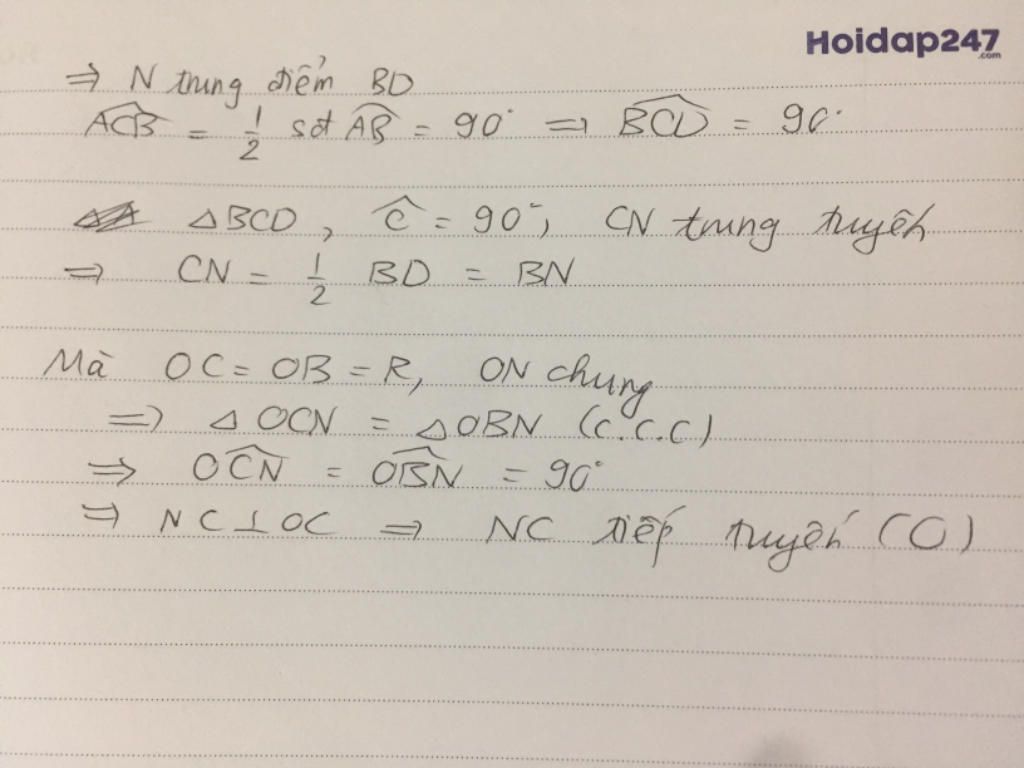 Hoidap247
.com
⇒ N trung điểm BD
ACB = 1/2 sđ AB = 90° ⇒ BCD = 90°
△BCD, C = 90°, CN trung tuyến
⇒ CN = 1/2 BD = BN
Mà OC = OB = R, ON chung
⇒ △OCN = △OBN (c.c.c)
⇒ OCN = OBN = 90°
⇒ NC ⊥ OC ⇒ NC tiếp tuyến (O)